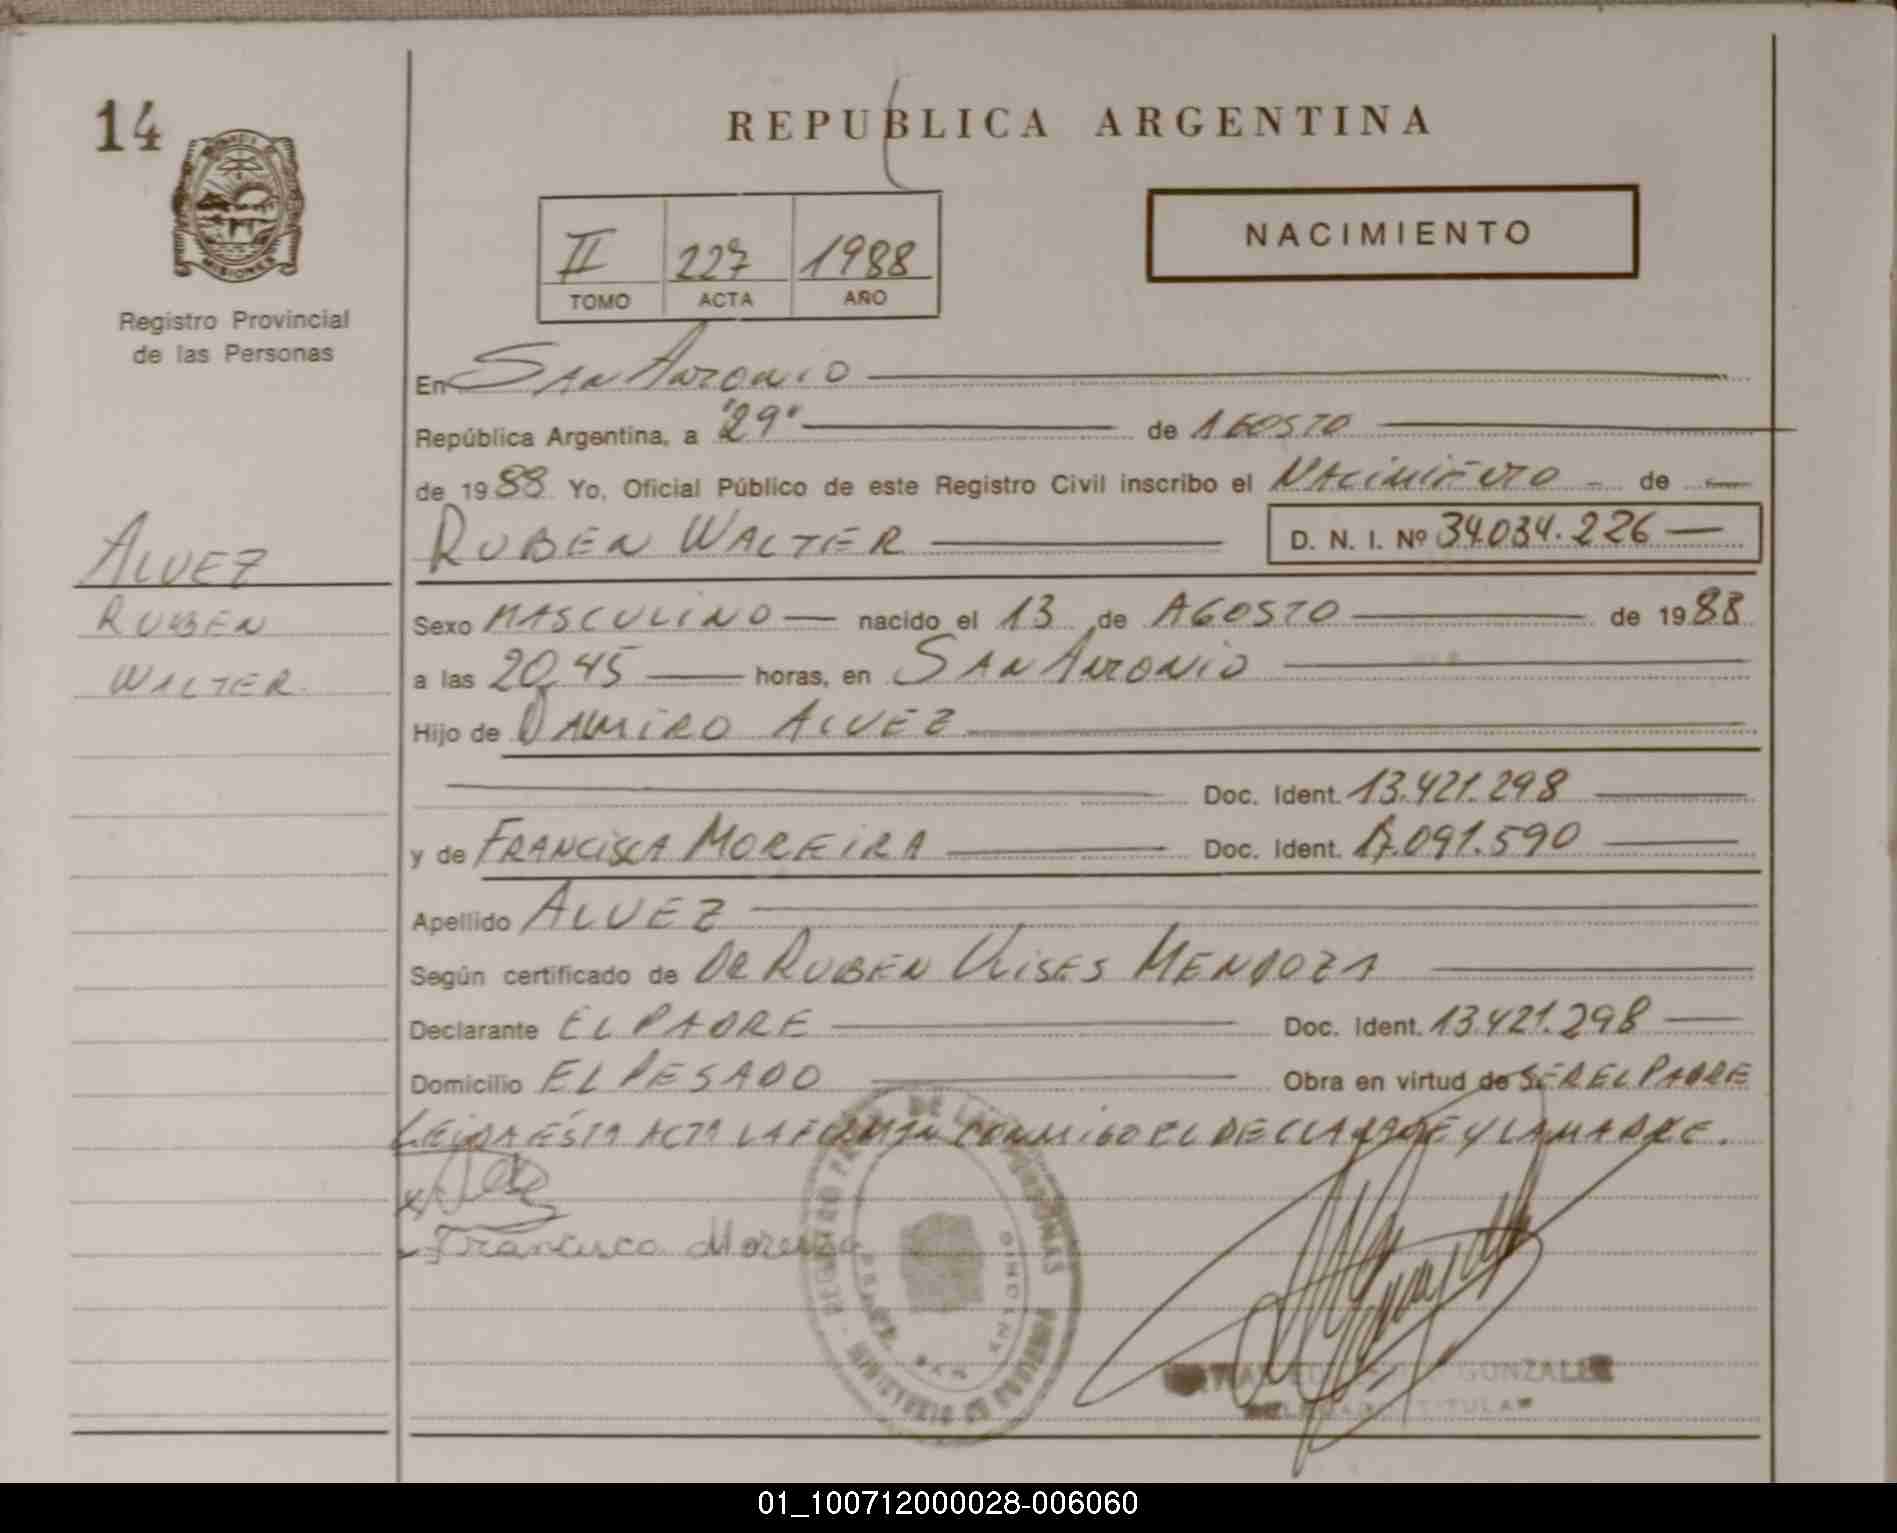 14
MISIONES
Registro Provincial
de las Personas
REPUBLICA ARGENTINA
II 227 1988
TOMO ACTA AÑO
NACIMIENTO
En SAN ANTONIO
República Argentina, a "29" de AGOSTO
de 1988 Yo, Oficial Público de este Registro Civil inscribo el NACIMIENTO de
ALVEZ
RUBEN
WALTER
RUBEN WALTER D. N. I. Nº 34.034.226
Sexo MASCULINO nacido el 13 de AGOSTO de 1988
a las 20,45 horas, en SAN ANTONIO
Hijo de RAMIRO ALVEZ
Doc. Ident. 13.421.298
y de FRANCISCA MOREIRA Doc. Ident. 17.091.590
Apellido ALVEZ
Según certificado de DR RUBEN ULISES MENDOZA
Declarante EL PADRE Doc. Ident. 13.421.298
Domicilio EL PESADO Obra en virtud de SER EL PADRE
LEIDA ESTA ACTA LA FIRMAN CONMIGO EL DECLARANTE Y LA MADRE.
Francisca Moreira
DE LAS PERSONAS
MINISTERIO DE GOBIERNO
GONZALEZ
TITULAR
01_100712000028-006060